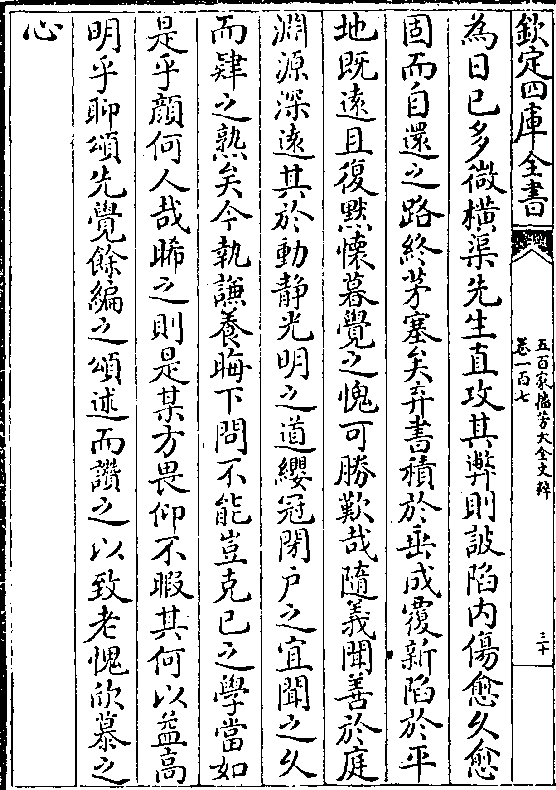 欽定四庫全書
五百家播芳大全文粹
卷一百七
三十
為日已多微橫渠先生直攻其弊則詖陷内傷愈久愈
固而自還之路終茅塞矣弃書積於垂成覆新陷於平
地既遠且復黙懐暮覺之愧可勝歎哉隨義聞善於庭
淵源深遠其於動靜光明之道纓冠閉户之宜聞之久
而肄之熟矣今執謙養晦下問不能豈克已之學當如
是乎顔何人哉睎之則是某方畏仰不暇其何以益高
明乎聊頌先覺餘編之頌述而讚之以致老愧欣慕之
心